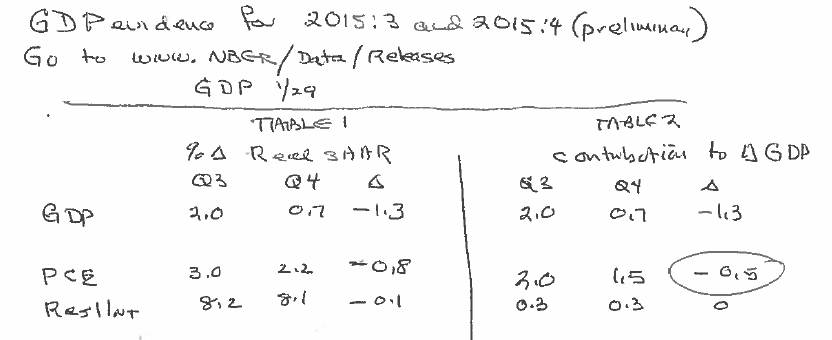 GDP evidence for 2015:3 and 2015:4 (preliminary)
Go to www.NBER/Data/Releases
GDP 1/29
TABLE 1 TABLE 2
% Δ Real SAAR contribution to Δ GDP
Q3 Q4 Δ Q3 Q4 Δ
GDP 2.0 0.7 -1.3 2.0 0.7 -1.3
PCE 3.0 2.2 -0.8 2.0 1.5 -0.5
Res'l Inv 8.2 8.1 -0.1 0.3 0.3 0